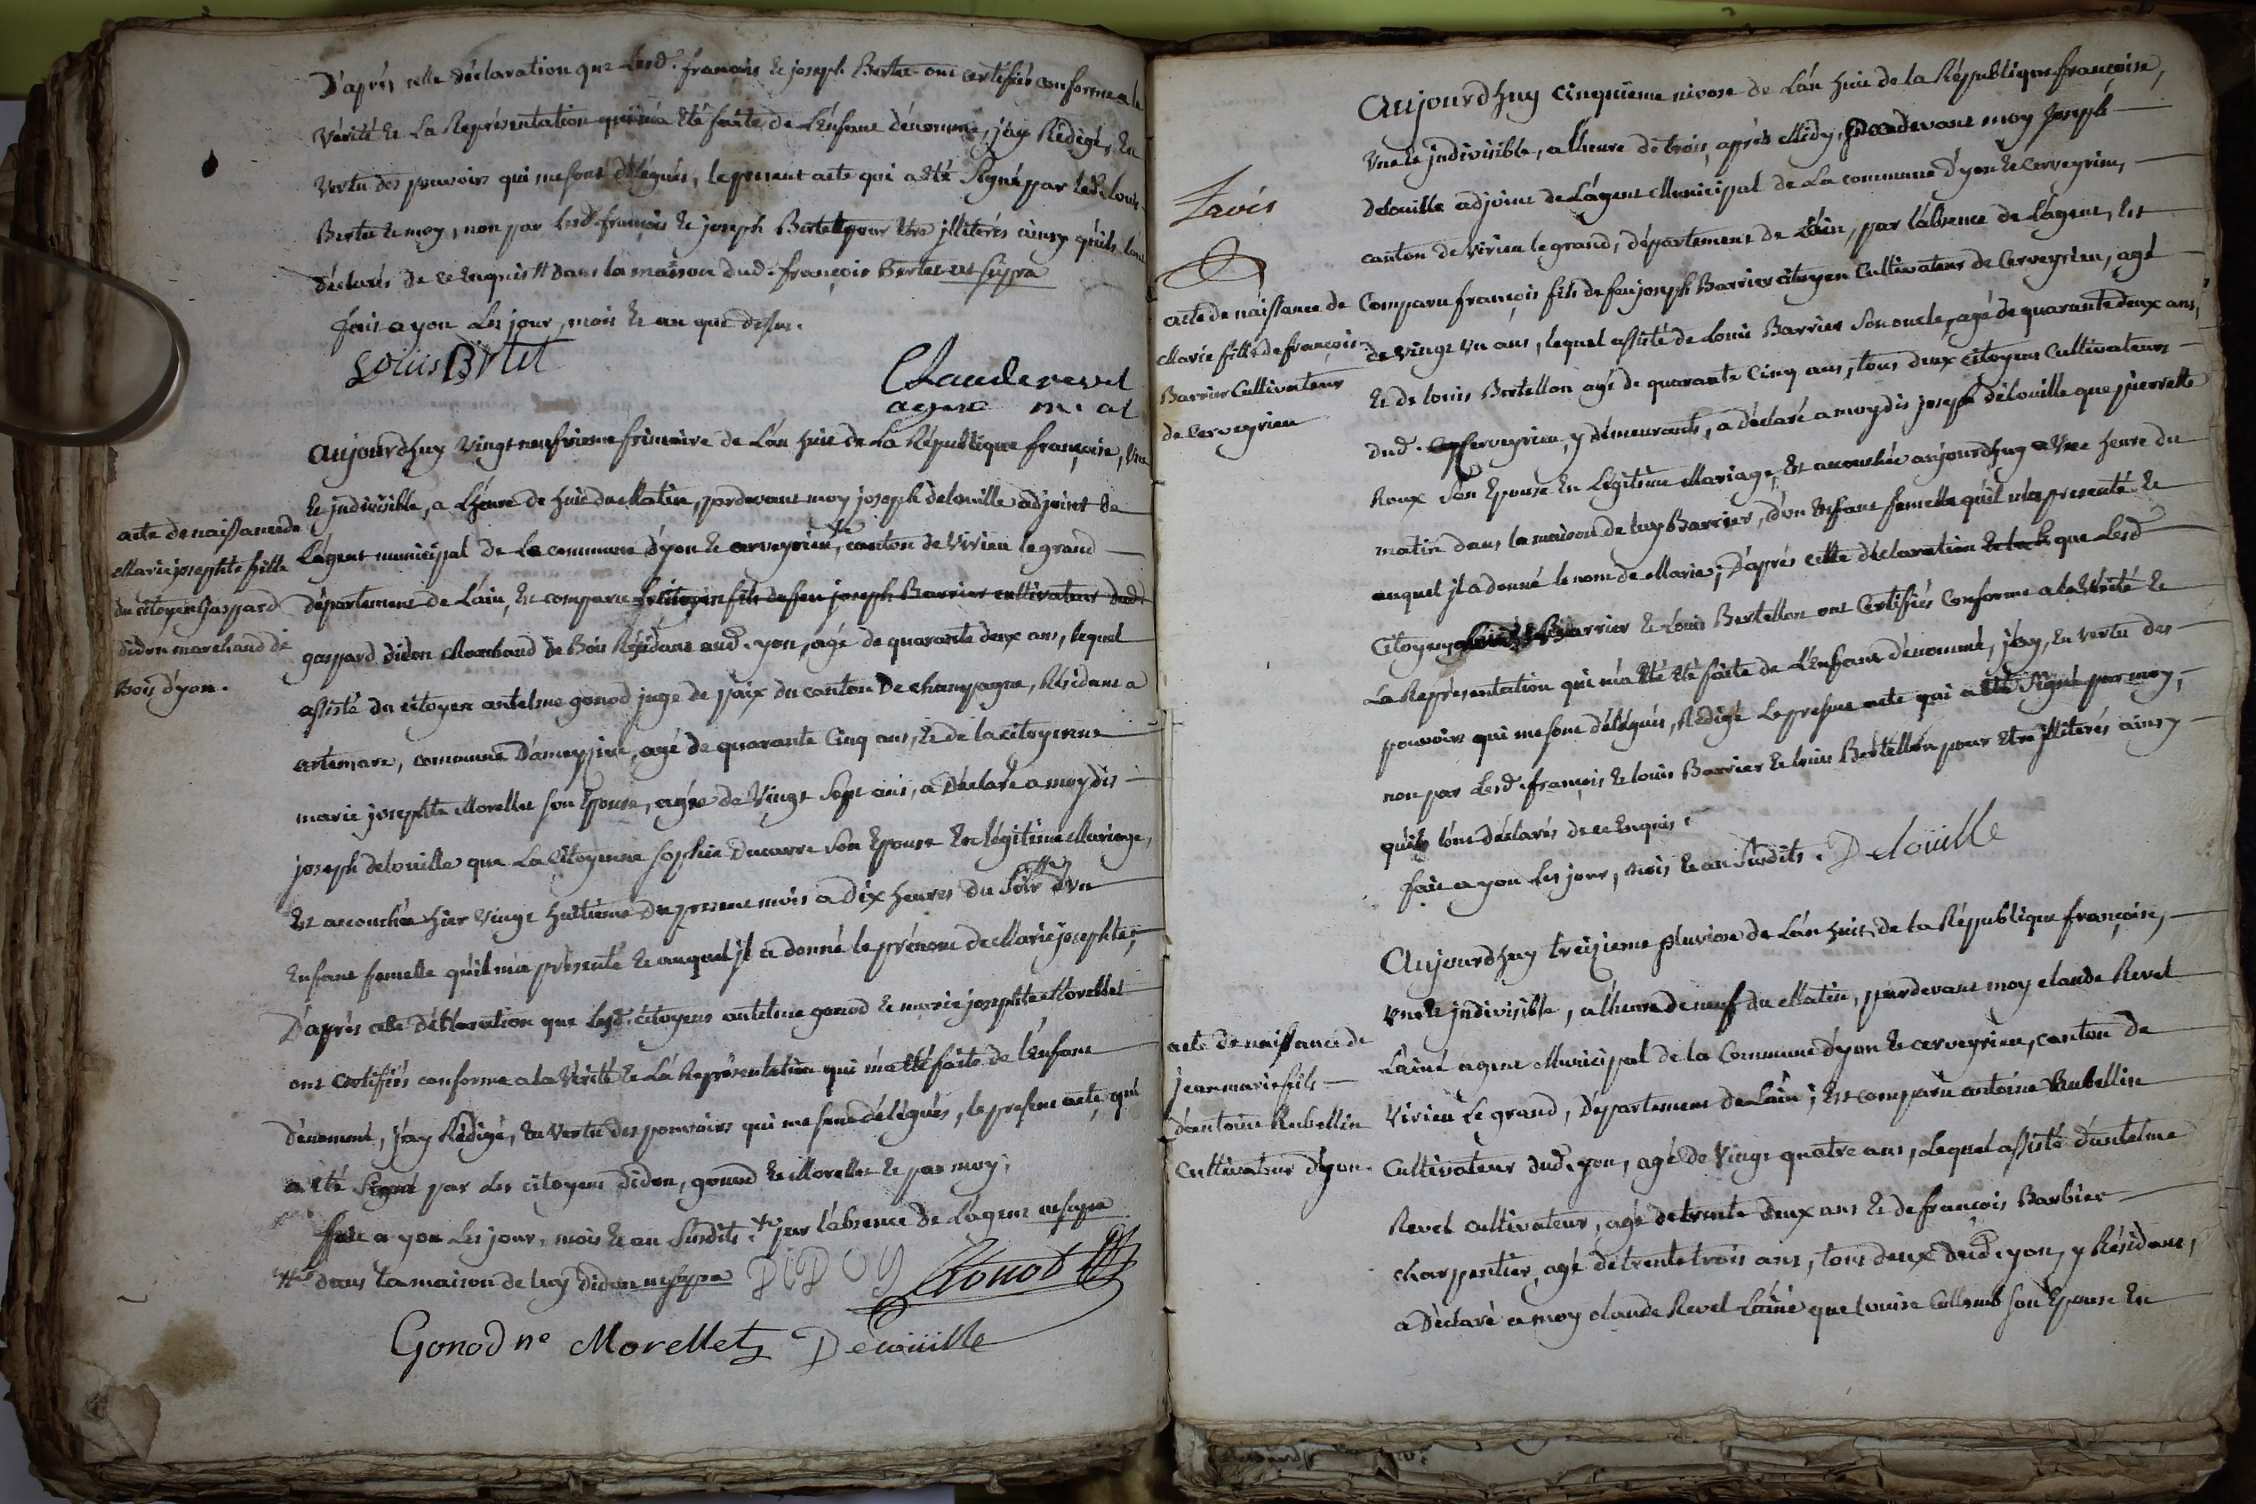 D'après cette déclaration que Lesd. françois et joseph Bertet ont certifiés conforme a la
Vérité et La Représentation qui m'a été faite de L'Enfant dénommé, j'ay Rédigé, en
Vertu des pouvoirs qui me sont délégués, le present acte qui a été Signé par led. Louis
Bertet et moy, non par Lesd. françois et joseph Bertet pour être jlliterés ainsy qu'ils l'ont
déclarés de ce Enquis # dans la maison dud. françois Bertet ut supra
fait a yon Les jour, mois et an que dessus.
Louis BRtet
Claude revel
agent m. al
acte de naissance de
Marie josephte fille
du citoyen Gaspard
didon marchand de
Bois d'yon.
aujourdhuy vingt neufvieme frimaire de L'an huit de La République françoise, une
et jndivisible, a L'heure de huit du Matin, pardevant moy joseph delouille adjoint de
L'agent municipal de La commune d'yon et cerveyrieu, canton de Virieu le grand
département de L'ain, Est comparu le citoyen fils de feu joseph Barrier cultivateur dud.
gaspard didon Marchand de Bois Résidant aud. yon, agé de quarante deux ans, lequel
assisté du citoyen antelme gonod juge de paix du canton De champagne, Résidant a
artemare, commune D'ameyzieu, agé de quarante Cinq ans, et de la citoyenne
marie josephte Morellet son Epouse, agée de Vingt Sept ans, a Déclaré a moy dit
joseph delouille que La Citoyenne sophie Ducarre son Epouse En légitime Mariage,
Est accouchée hier vingt huitième du present mois a dix heures du Soir d'un
Enfant femelle qu'il m'a présenté et auquel jl a donné le prénom de Marie josephte;
D'après cette Déclaration que Lesd. citoyens antelme gonod et marie josephte Morellet
ont Certifiés conforme a la Vérité et La Représentation qui m'a été faite de l'Enfant
dénommé, j'ay Rédigé, En Vertu des pouvoirs qui me sont délégués, le present acte qui
a été Signé par les citoyens didon, gonod et Morellet et par moy;
fait a yon Les jour, mois et an Susdits. par l'absence de L'agent ut supra
# dans la maison de luy didon ut supra
DIDON
Gonod
Gonod né Morellet
Delouille
Lavis
acte de naissance de
Marie fille de françois
Barrier Cultivateur
de Cerveyrieu
aujourdhuy cinquieme nivose de L'an huit de la République françoise,
Une et jndivisible, a l'heure de trois après Midy, Pardevant moy Joseph
delouille adjoint de L'agent Municipal de La commune d'yon et Cerveyrieu,
canton de Virieu le grand, département de L'ain, par l'absence de L'agent, Est
Comparu françois fils de feu joseph Barrier citoyen Cultivateur de Cerveyrieu, agé
de Vingt Un ans, lequel assisté de Louis Barrier Son oncle, agé de quarante deux ans,
et de louis Bertellon agé de quarante Cinq ans, tous deux citoyens Cultivateurs
dud. Cerveyrieu, y demeurants, a déclaré a moy dit joseph delouille que pierrette
Roux Son Epouse En Légitime Mariage, Est accouchée aujourdhuy a Une heure du
matin dans la maison de luy Barrier, d'un Enfant femelle qu'il m'a presenté et
auquel jl a donné le nom de Marie; D'après cette déclaration que Lesd
Citoyens Barrier et Louis Bertellon ont Certifiés Conforme a la Vérité et
La Représentation qui m'a été été faite de L'Enfant dénommé, j'ay, En vertu des
pouvoirs qui me sont délégués, Rédigé Le present acte qui a été Signé par moy,
non par Lesd. françois et louis Barrier et louis Bertellon pour etre jlliterés ainsy
qu'ils l'ont déclarés de ce Enquis.
fait a yon Les jour, mois et an Susdits. Delouille
acte de naissance de
jean marie fils
d'antoine Rubellin
Cultivateur d'yon.
aujourdhuy treizieme pluviose de L'an huit de la République françoise,
une et jndivisible, a l'heure de neuf du Matin, pardevant moy claude Revel
L'ainé agent Municipal de la Commune d'yon et cerveyrieu, canton de
Virieu Le grand, Département de L'ain; Est comparu antoine Rubellin
Cultivateur dud. yon, agé de Vingt quatre ans, Lequel assisté d'antelme
Revel cultivateur, agé de trente deux ans et de françois Barbier
charpentier, agé de trente trois ans, tous deux dud. yon, y Résidant,
a Déclaré a moy claude Revel L'ainé que louise Collomb son Epouse En